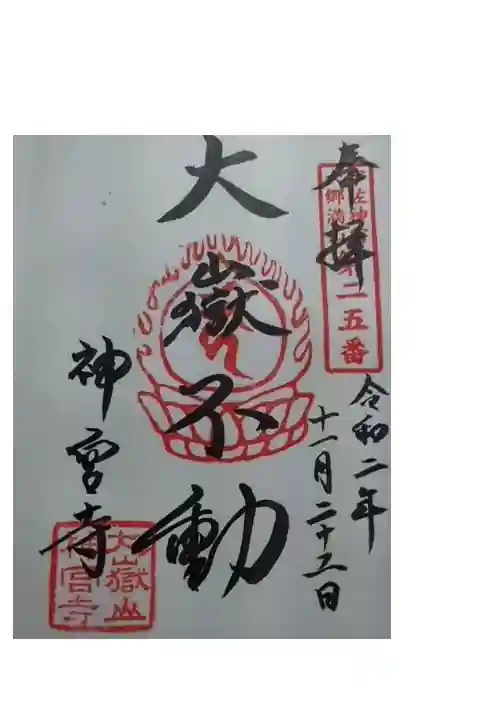 奉拝
二五番
令和二年
十一月二十三日
大嶽不動
神宮寺
大嶽山
神宮寺